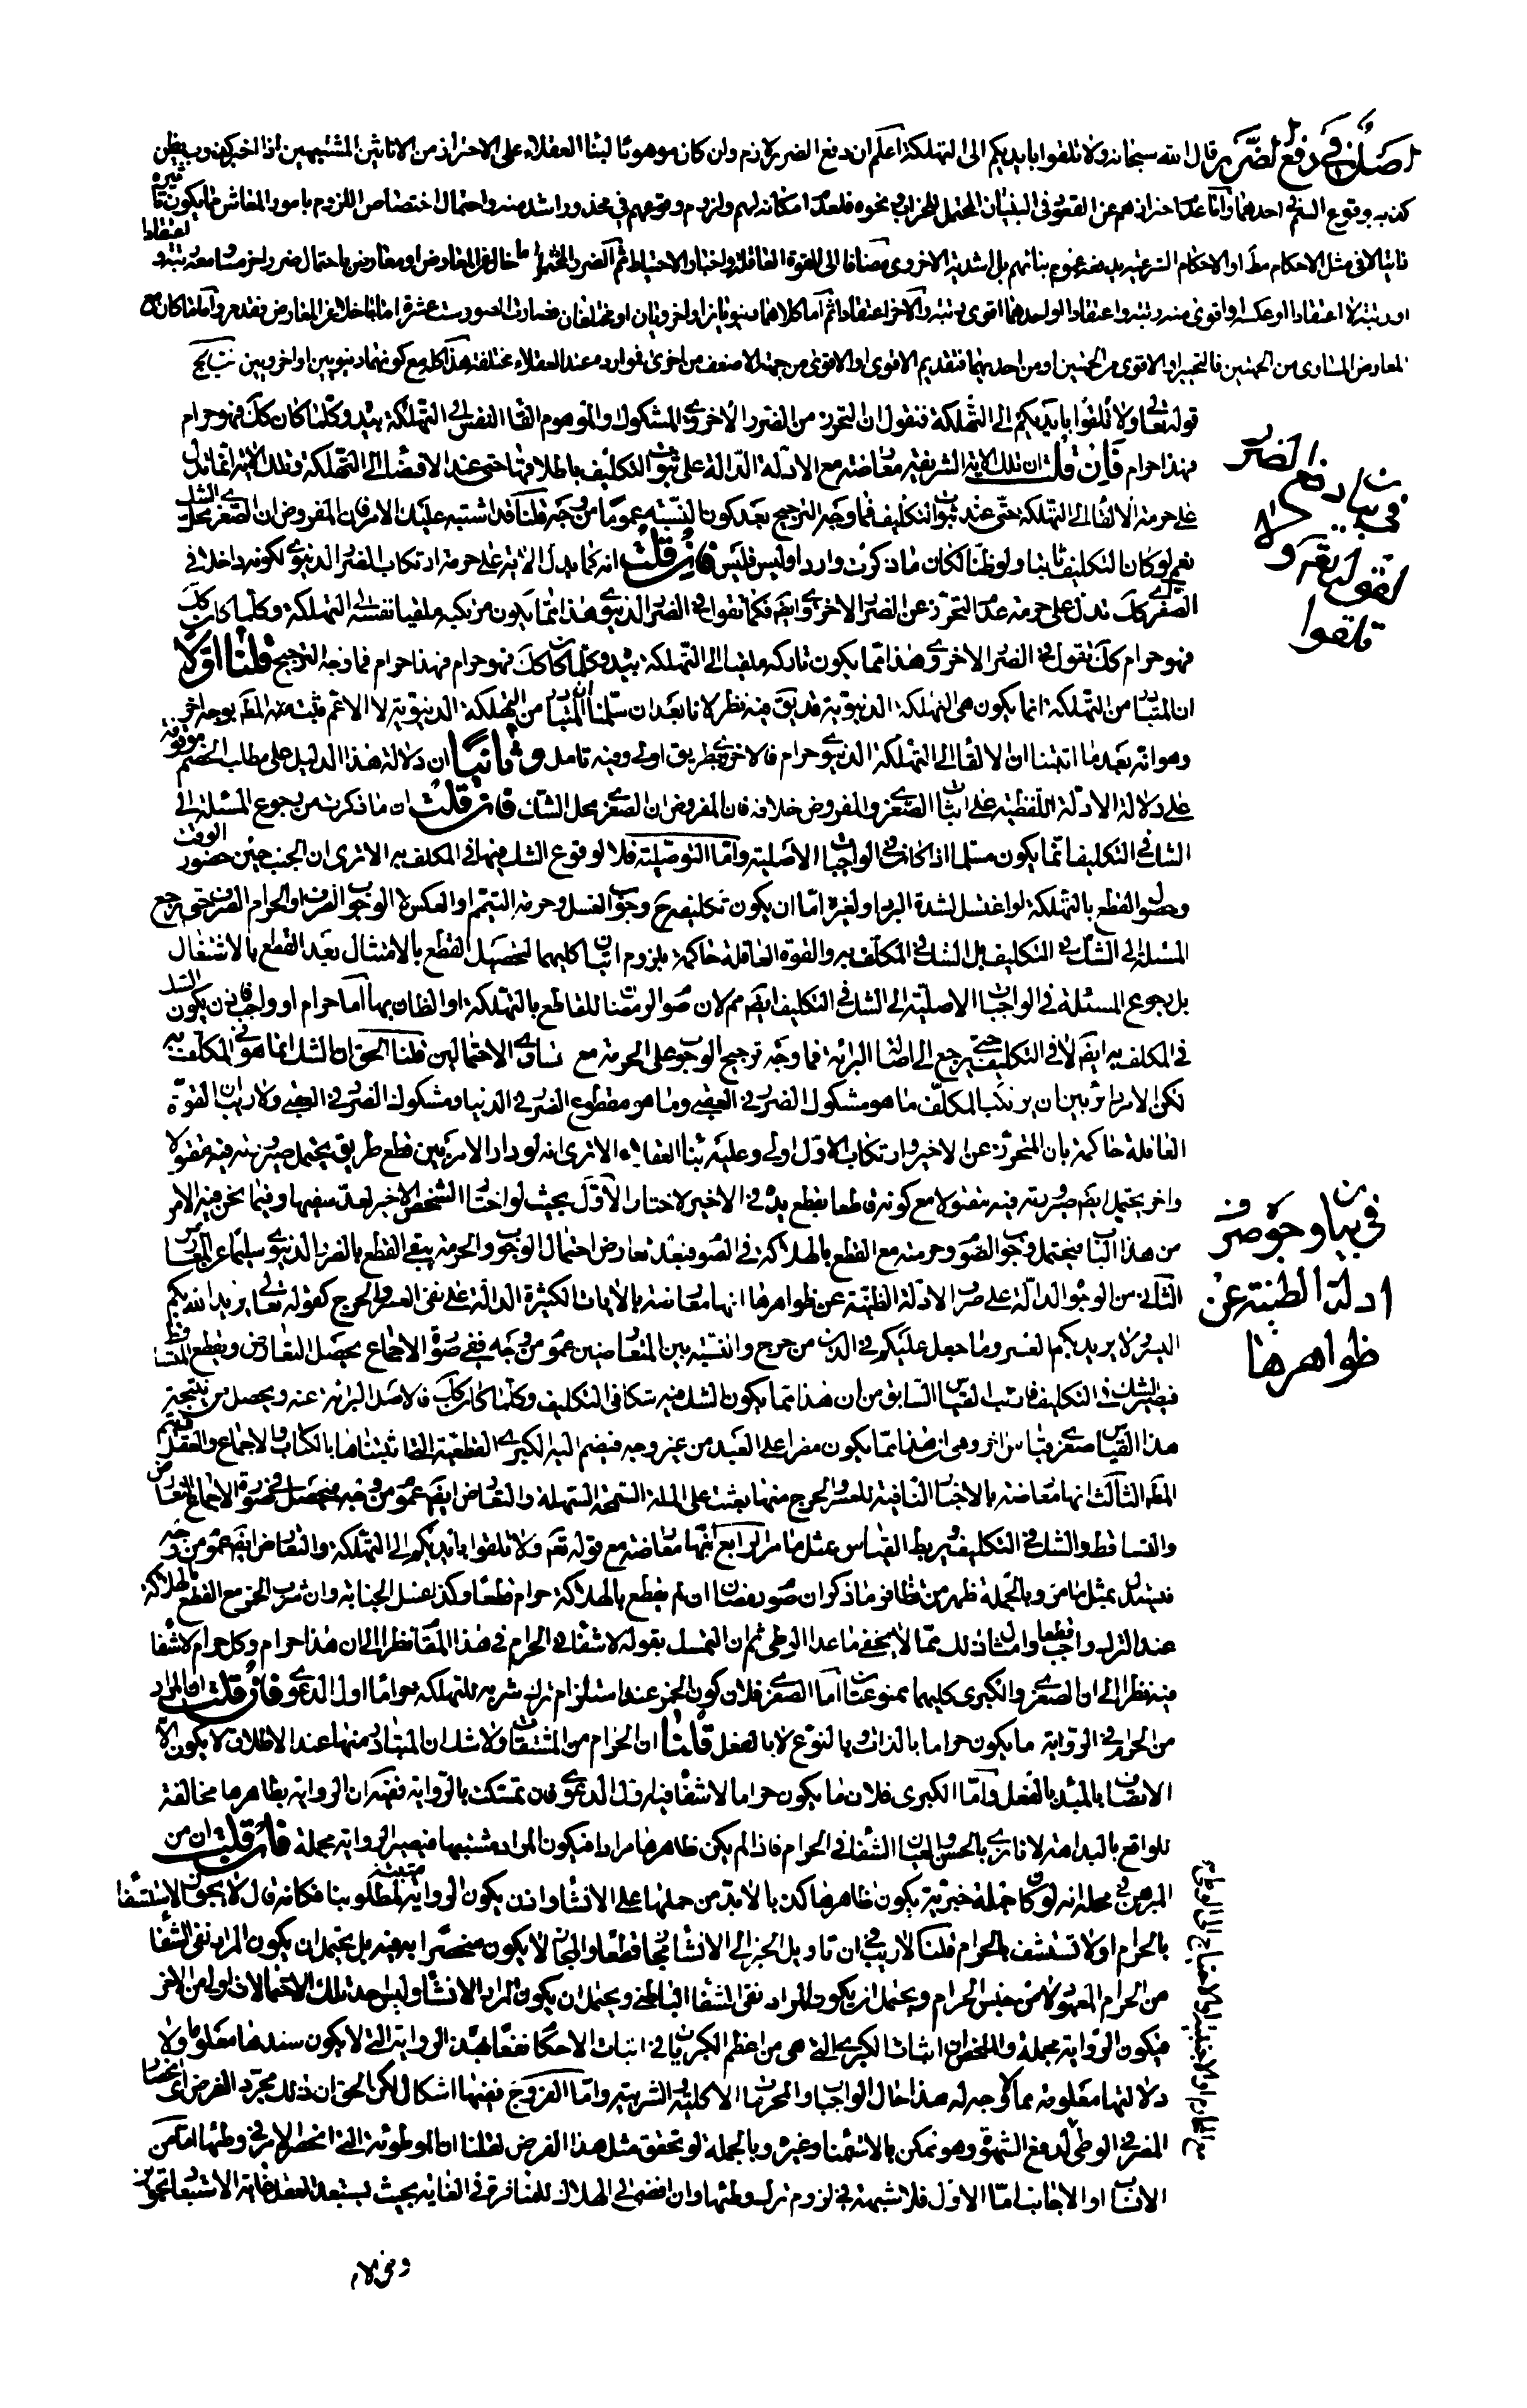 اصل في دفع الضرر قال الله سبحانه ولا تلقوا بايديكم الى التهلكة اعلم ان دفع الضرر لازم وان كان موهوما لبناء العقلاء على الاحتراز من الانائين المشتبهين اذا اخبر
كذبه بوقوع السم في احدهما واما عدم احترازهم عن القعود في البنيان المحتمل للخراب ونحوه فلعدم امكانه لهم ولزوم وقوعهم في محذور اشد منه واحتمال اختصاص اللزوم بامور المعاش مما يكون
ثانيا لا في مثل الاحكام او الاحكام الشرعية عموم بنائهم بل اشدية الاخروي مضافا الى القوة العاقلة واخبار الاحتياط ثم الضرر المحتمل اما خال عن المعارض او معارض باحتمال ضرر اخر
او رتبة لا اعتقادا او عكسه او اقوى منه رتبة واعتقادا او احدهما اقوى رتبة والاخر اعتقادا ثم اما كلاهما دنيويان او اخرويان او مختلفان فصارت الصور ستة عشر اما ما خلا عن المعارض فقد مر واما ما كان
المعارض المساوي من الجهتين فالتخيير او الاقوى من الجهتين او من احديهما فتقديم الاقوى والاقوى من جهة الاضعف من اخرى فموارده عند العقلاء مختلفة هذا كله مع كونهما دنيويين او اخرويين
قوله تعالى ولا تلقوا بايديكم الى التهلكة فنقول ان التحرز من الضرر الاخروي المشكوك والموهوم القاء النفس الى التهلكة بيده وكلما كان كك فهو حرام
فهذا حرام فان قلت ان تلك الاية الشريفة معارضة مع الادلة الدالة على ثبوت التكليف باطلاقها حتى عند الافضاء الى التهلكة وتلك الاية انما تدل
على حرمة الالقاء الى التهلكة حتى عند ثبوت التكليف فما وجه الترجيح بعد كون النسبة عموما من وجه قلنا قد اشتبه عليك الامر فان المفروض ان الصغرى محل الشك
نعم لو كان التكليف ثابتا ولو ظنا لكان ما ذكرت واردا وليس فليس فان قلت انه كما يدل الاية على حرمة ارتكاب الضرر الدنيوي لكونه داخلا في
الصغرى كك تدل على حرمة عدم التحرز عن الضرر الاخروي وايض فكما تقول في الضرر الدنيوي هذا مما يكون مرتكبه ملقيا نفسه الى التهلكة وكلما كان كك
فهو حرام كك نقول في الضرر الاخروي وهذا مما يكون تاركه ملقيا الى التهلكة بيده وكلما كان كك فهو حرام فهذا حرام فما وجه الترجيح قلنا اولا
ان المتبادر من التهلكة انما يكون هي التهلكة الدنيوية فيه نظر لانا بعد ان سلمنا ان المتبادر من التهلكة الدنيوية لا الاعم يثبت منه المط بوجه اخر
وهو انه بعد ما اثبتنا ان الالقاء الى التهلكة الدنيوي حرام فالاخروي بطريق اولى وفيه تامل وثانيا ان دلالة هذا الدليل على مطلب الخصم موقوفة
على دلالة الادلة اللفظية على اثبات الصغرى والمفروض خلافه فان المفروض ان الصغرى محل الشك فان قلت ان ما ذكرت من رجوع المسئلة الى
الشك في التكليف انما يكون مسلما اذا كان في الواجبات الاصلية واما التوصلية فلا لوقوع الشك فيها في المكلف به الا ترى ان الجنب حين حضور الوقت
وحصول القطع بالتهلكة لو اغتسل لشدة البرد او لغيره اما ان يكون تكليفه ح وجوب الغسل وحرمة التيمم او العكس لا الوجوب الصرف او الحرام الصرف حتى يرجع
المسئلة الى الشك في التكليف بل الشك في المكلف به والقوة العاقلة حاكمة بلزوم اتيان كليهما لتحصيل القطع بالامتثال بعد القطع بالاشتغال
بل رجوع المسئلة في الواجبات الاصلية الى الشك في التكليف ايض مم لان صوم رمضان للقاطع بالتهلكة او الظان بها اما حرام او واجب فاذن يكون الشك
في المكلف به ايض لا في التكليف حتى يرجع الى اصالة البرائة فما وجه ترجيح الوجوب على الحرمة مع تساوي الاحتمالين قلنا الحق ان الشك انما هو في المكلف به
لكن الامر دائر بين ان يرتكب المكلف ما هو مشكوك الضرر في العقبى وما هو مقطوع الضرر في الدنيا ومشكوك الضرر في العقبى ولا ريب ان القوة
العاقلة حاكمة بان التحرز عن الاخير وارتكاب الاول اولى وعليه بناء العقلاء الا ترى انه لو دار الامر بين قطع طريق يحتمل صيرورته فيه مقتولا
واخر يحتمل ايض صيرورته فيه مقتولا مع كونه قاطعا بقطع يده في الاخير لاختار الاول بحيث لو اختار الشخص الاخير لعد سفيها وفيما نحن فيه الامر
من هذا الباب فيحتمل وجوب الصوم وحرمته مع القطع بالهلاكة في الصوم فبعد تعارض احتمال الوجوب والحرمة يبقى القطع بالضرر الدنيوي سليما عن المعارض
الثاني من الوجوه الدالة على صرف الادلة الظنية عن ظواهرها انها معارضة بالايات الكثيرة الدالة على نفي العسر والحرج كقوله تعالى يريد الله بكم
اليسر ولا يريد بكم العسر وما جعل عليكم في الدين من حرج والنسبة بين المتعارضين عموم من وجه ففي صورة الاجتماع يحصل التعارض
فيصير الشك في التكليف فرتب القياس السابق من ان هذا مما يكون الشك فيه شكا في التكليف وكلما كان كك فالاصل البرائة عنه ويحصل من نتيجة
هذا القياس صغرى قياس اخر وهي ان هذا مما يكون مضرا على العبد من غير وجه فيضم اليه الكبرى القطعية التي اثبتناها بالكتاب والاجماع والعقل
المط الثالث انها معارضة بالاخبار النافية للعسر والحرج منها بعثت على الملة السمحة السهلة والتعارض ايض عموم من وجه فيحصل في صورة الاجتماع التعارض
والتساقط والشك في التكليف فيربط القياس بمثل ما مر الرابع انها معارضة مع قوله تعالى ولا تلقوا بايديكم الى التهلكة والتعارض ايض عموم من وجه
فيستدل بمثل ما مر وبالجملة ظهر من ما ذكر ان صوم رمضان ان لم يقطع بالهلاكة حرام قطعا وكذا غسل الجنابة وان شرب الخمر مع القطع بالهلاكة
عند الترك واجب قطعا وامثال ذلك مما لا يخفى ما عدا الوطي ثم ان التمسك بقوله لا شفاء في الحرام في هذا المقام نظرا الى ان هذا حرام وكل حرام لا شفاء
فيه نظرا الى ان الصغرى والكبرى كليهما ممنوعتان اما الصغرى فلان كون الخمر عند استلزام ترك شربه للتهلكة حراما اول الدعوى فان قلت ان المراد
من الحرام في الرواية ما يكون حراما بالذات وبالنوع لا بالفعل قلنا ان الحرام من المشتقات ولا شك ان المتبادر منها عند الاطلاق لا يكون الا
الاتصاف بالمبدء بالفعل واما الكبرى فلان ما يكون حراما لا شفاء فيه اول الدعوى فان تمسكت بالرواية ففيه ان الرواية بظاهرها مخالفة
للواقع بالبداهة لانا نرى بالحس والعيان الشفاء في الحرام فاذا لم يكن ظاهرها مرادا فيكون المراد مشتبها فيصير الرواية مجملة فان قلت ان من
المبرهن في محله انه لو كان جملة خبرية يكون ظاهرها كذبا لا بد من حملها على الانشاء واذن يكون الرواية مثبتة لمطلوبنا فكانه قال لا يجوز الاستشفاء
بالحرام او لا تستشف بالحرام قلنا لا ريب في ان تاويل الخبر الى الانشاء مجاز قطعا والمجاز لا يكون منحصرا به فيه بل يحتمل ان يكون المراد نفي الشفاء
من الحرام المعهود لا من جنس الحرام ويحتمل ان يكون المراد نفي الشفاء الباطني ويحتمل ان يكون المراد الانشاء وليس احد تلك الاحتمالات اولى من الاخر
فيكون الرواية مجملة والملخص ان اثبات الكبرى التي هي من اعظم الكبريات في اثبات الاحكام بهذه الرواية التي لا يكون سندها معلوما ولا
دلالتها معلومة مما لا وجه له هذا حال الواجبات والمحرمات الاكلية والشربية واما الفروج ففيها اشكال لكن الحق ان ذلك مجرد الفرض اي انحصار
المفر في الوطي لدفع الشهوة وهو ممكن بالاستمناء وغيره وبالجملة لو تحقق مثل هذا الفرض لقلنا ان الموطوئة التي انحصر الامر في وطئها اما من
الانساب او الاجانب اما الاول فلا شبهة في لزوم ترك وطئها وان افضى الى الهلاك للمنافرة في الغاية بحيث يستبعد العقل غاية الاستبعاد تجويز
في بيان دفع الضرر
لقوله تعالى ولا
تلقوا
في بيان وجوه صرف
ادلة الظنية عن
ظواهرها